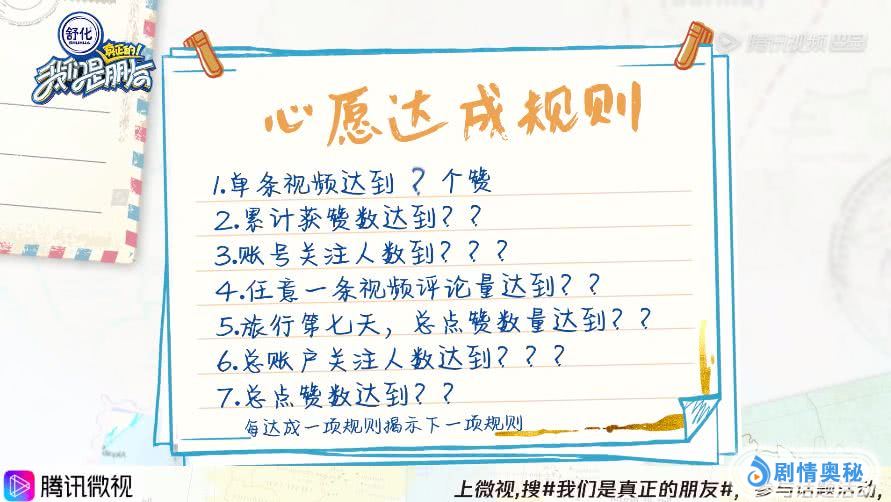 舒化
SHUHUA
真正的!
我们是朋友
腾讯视频
心愿达成规则
1.单条视频达到 ? 个赞
2.累计获赞数达到??
3.账号关注人数到???
4.任意一条视频评论量达到??
5.旅行第七天，总点赞数量达到??
6.总账户关注人数达到???
7.总点赞数达到??
每达成一项规则揭示下一项规则
腾讯微视
上微视,搜#我们是真正的朋友#,
剧情奥秘